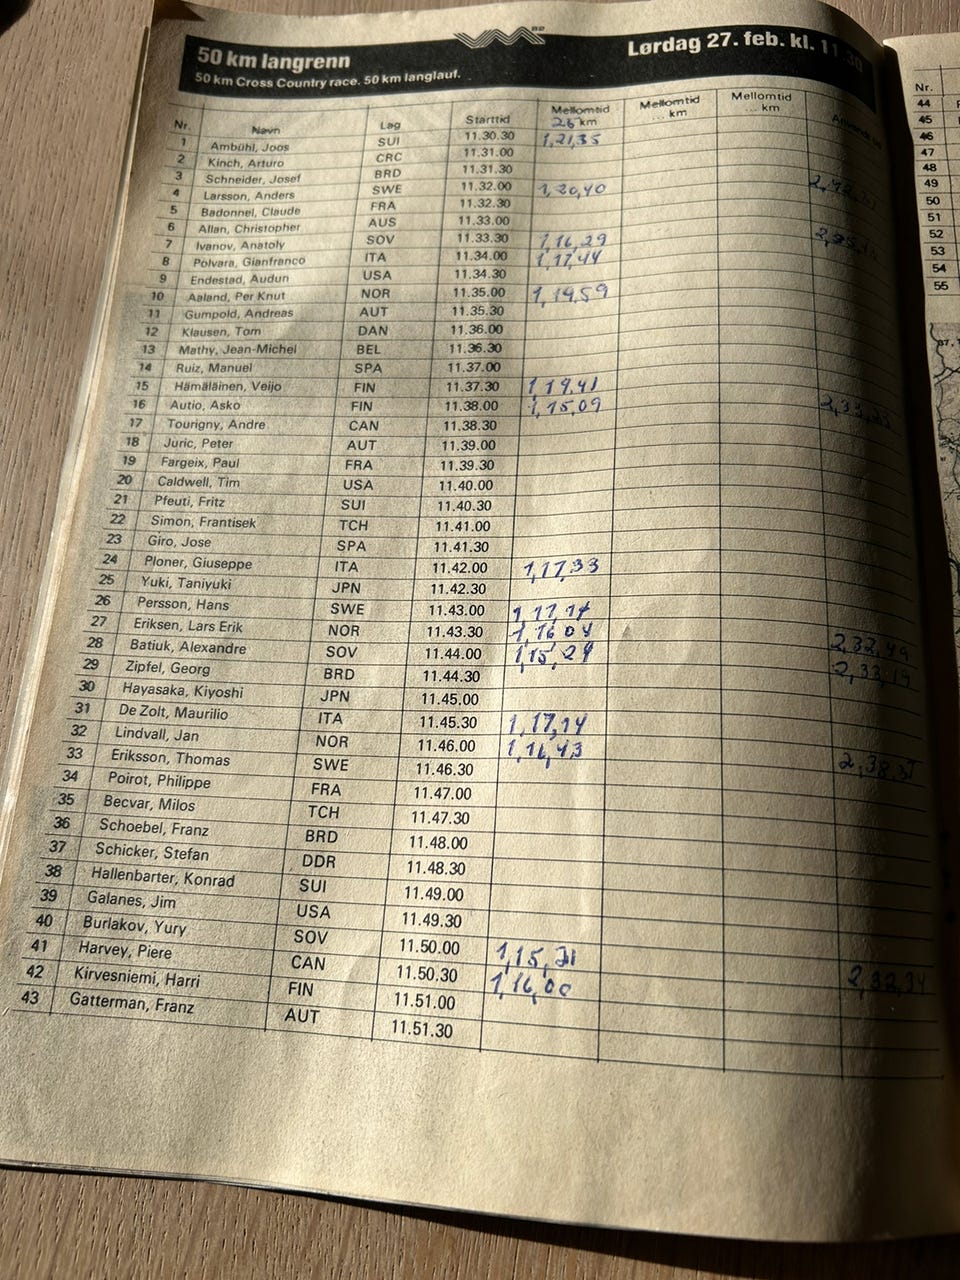 50 km langrenn
50 km Cross Country race. 50 km langlauf.
Lørdag 27. feb. kl. 11.30
Nr. Navn Lag Starttid Mellomtid 26 km Mellomtid ... km Mellomtid ... km
1 Ambühl, Joos SUI 11.30.30 1,21,35
2 Kinch, Arturo CRC 11.31.00
3 Schneider, Josef BRD 11.31.30
4 Larsson, Anders SWE 11.32.00 1,20,40
5 Badonnel, Claude FRA 11.32.30
6 Allan, Christopher AUS 11.33.00
7 Ivanov, Anatoly SOV 11.33.30 1,16,29
8 Polvara, Gianfranco ITA 11.34.00 1,17,44
9 Endestad, Audun USA 11.34.30
10 Aaland, Per Knut NOR 11.35.00 1,14,59
11 Gumpold, Andreas AUT 11.35.30
12 Klausen, Tom DAN 11.36.00
13 Mathy, Jean-Michel BEL 11.36.30
14 Ruiz, Manuel SPA 11.37.00
15 Hämäläinen, Veijo FIN 11.37.30 1 19,41
16 Autio, Asko FIN 11.38.00 1,15,09
17 Tourigny, Andre CAN 11.38.30
18 Juric, Peter AUT 11.39.00
19 Fargeix, Paul FRA 11.39.30
20 Caldwell, Tim USA 11.40.00
21 Pfeuti, Fritz SUI 11.40.30
22 Simon, Frantisek TCH 11.41.00
23 Giro, Jose SPA 11.41.30
24 Ploner, Giuseppe ITA 11.42.00 1,17,33
25 Yuki, Taniyuki JPN 11.42.30
26 Persson, Hans SWE 11.43.00 1,17,14
27 Eriksen, Lars Erik NOR 11.43.30 1,16 04 2,32,49
28 Batiuk, Alexandre SOV 11.44.00 1,15,24 2,33,19
29 Zipfel, Georg BRD 11.44.30
30 Hayasaka, Kiyoshi JPN 11.45.00
31 De Zolt, Maurilio ITA 11.45.30 1,17,14
32 Lindvall, Jan NOR 11.46.00 1,16,43
33 Eriksson, Thomas SWE 11.46.30
34 Poirot, Philippe FRA 11.47.00
35 Becvar, Milos TCH 11.47.30
36 Schoebel, Franz BRD 11.48.00
37 Schicker, Stefan DDR 11.48.30
38 Hallenbarter, Konrad SUI 11.49.00
39 Galanes, Jim USA 11.49.30
40 Burlakov, Yury SOV 11.50.00 1,15,31 2,32,34
41 Harvey, Piere CAN 11.50.30 1,16,00
42 Kirvesniemi, Harri FIN 11.51.00
43 Gatterman, Franz AUT 11.51.30
Nr.
44
45
46
47
48
49
50
51
52
53
54
55